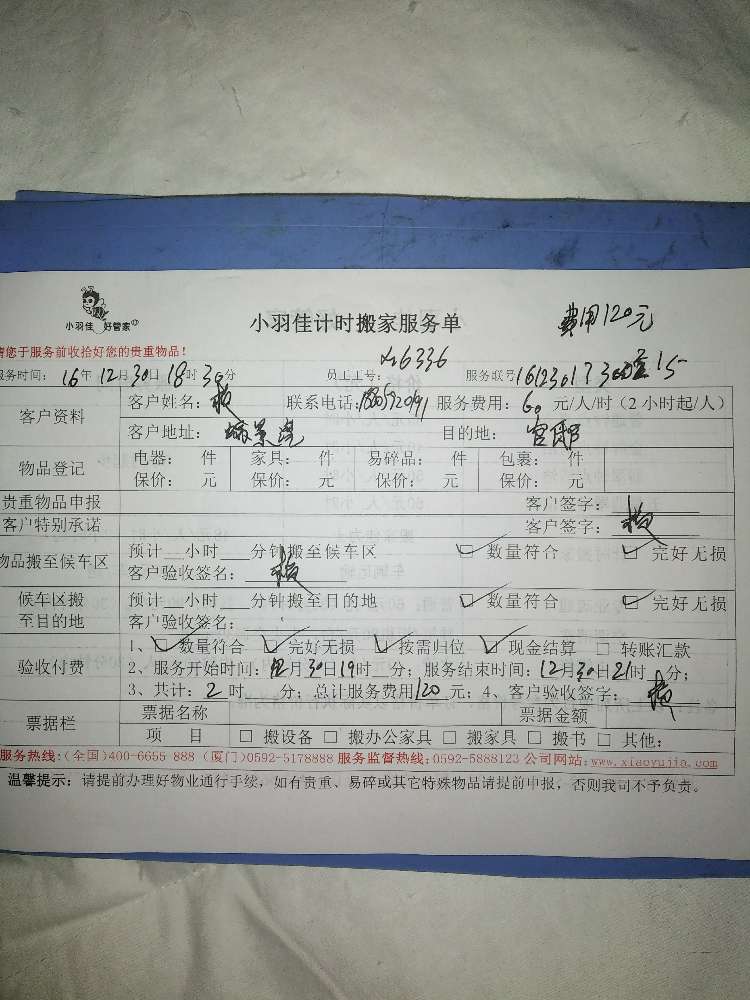 小羽佳 好管家
小羽佳计时搬家服务单
费用120元
请您于服务前收拾好您的贵重物品！
服务时间：16年12月30日18时30分 员工工号：6336 服务联号
客户资料
客户姓名： 联系电话： 服务费用：60元/人/时（2小时起/人）
客户地址： 目的地：
物品登记
电器： 件 家具： 件 易碎品： 件 包裹： 件
保价： 元 保价： 元 保价： 元 保价： 元
贵重物品申报 客户签字：
客户特别承诺 客户签字：
物品搬至候车区
预计__小时___分钟搬至候车区 □ 数量符合 □ 完好无损
客户验收签名：
候车区搬至目的地
预计__小时___分钟搬至目的地 □ 数量符合 □ 完好无损
客户验收签名：
验收付费
1、□ 数量符合 □ 完好无损 □ 按需归位 □ 现金结算 □ 转账汇款
2、服务开始时间：12月30日19时__分；服务结束时间：12月30日21时__分；
3、共计：2时___分；总计服务费用120元；4、客户验收签字：
票据栏
票据名称 票据金额
项 目 □ 搬设备 □ 搬办公家具 □ 搬家具 □ 搬书 □ 其他：
服务热线：(全国)400-6655 888 (厦门)0592-5178888 服务监督热线：0592-5888123 公司网站：www.xiaoyujia.com
温馨提示：请提前办理好物业通行手续，如有贵重、易碎或其它特殊物品请提前申报，否则我司不予负责。